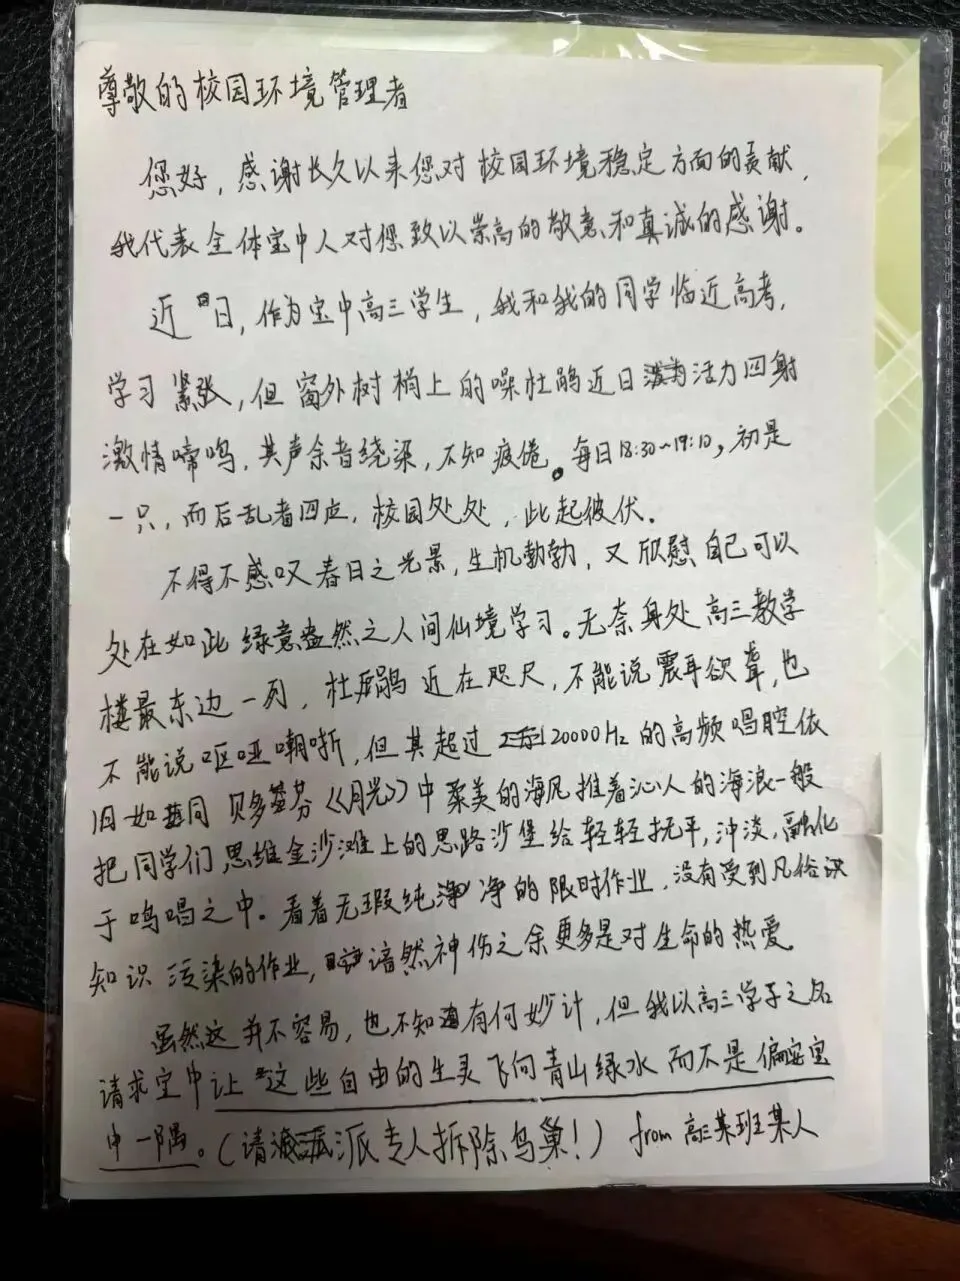 尊敬的校园环境管理者
您好，感谢长久以来您对校园环境稳定方面的贡献，
我代表全体宝中人对您致以崇高的敬意和真诚的感谢。
近日，作为宝中高三学生，我和我的同学临近高考，
学习紧张，但窗外树梢上的噪杜鹃近日活力四射
激情啼鸣，其声余音绕梁，不知疲倦。每日18:30~19:10，初是
一只，而后乱者四点，校园处处，此起彼伏。
不得不感叹春日之光景，生机勃勃，又欣慰自己可以
处在如此绿意盎然之人间仙境学习。无奈身处高三教学
楼最东边一列，杜鹃近在咫尺，不能说震耳欲聋，也
不能说呕哑嘲哳，但其超过20000Hz的高频唱腔依
旧如同贝多芬《月光》中柔美的海风推着沁人的海浪一般
把同学们思维金沙滩上的思路沙堡给轻轻抚平，冲淡，融化
于鸣唱之中。看着无瑕纯净的限时作业，没有受到凡俗识
知识污染的作业，谙然神伤之余更多是对生命的热爱
虽然这并不容易，也不知有何妙计，但我以高三学子之名
请求宝中让这些自由的生灵飞向青山绿水而不是偏安宝
中一隅。（请派专人拆除鸟巢！） from 高三某班某人